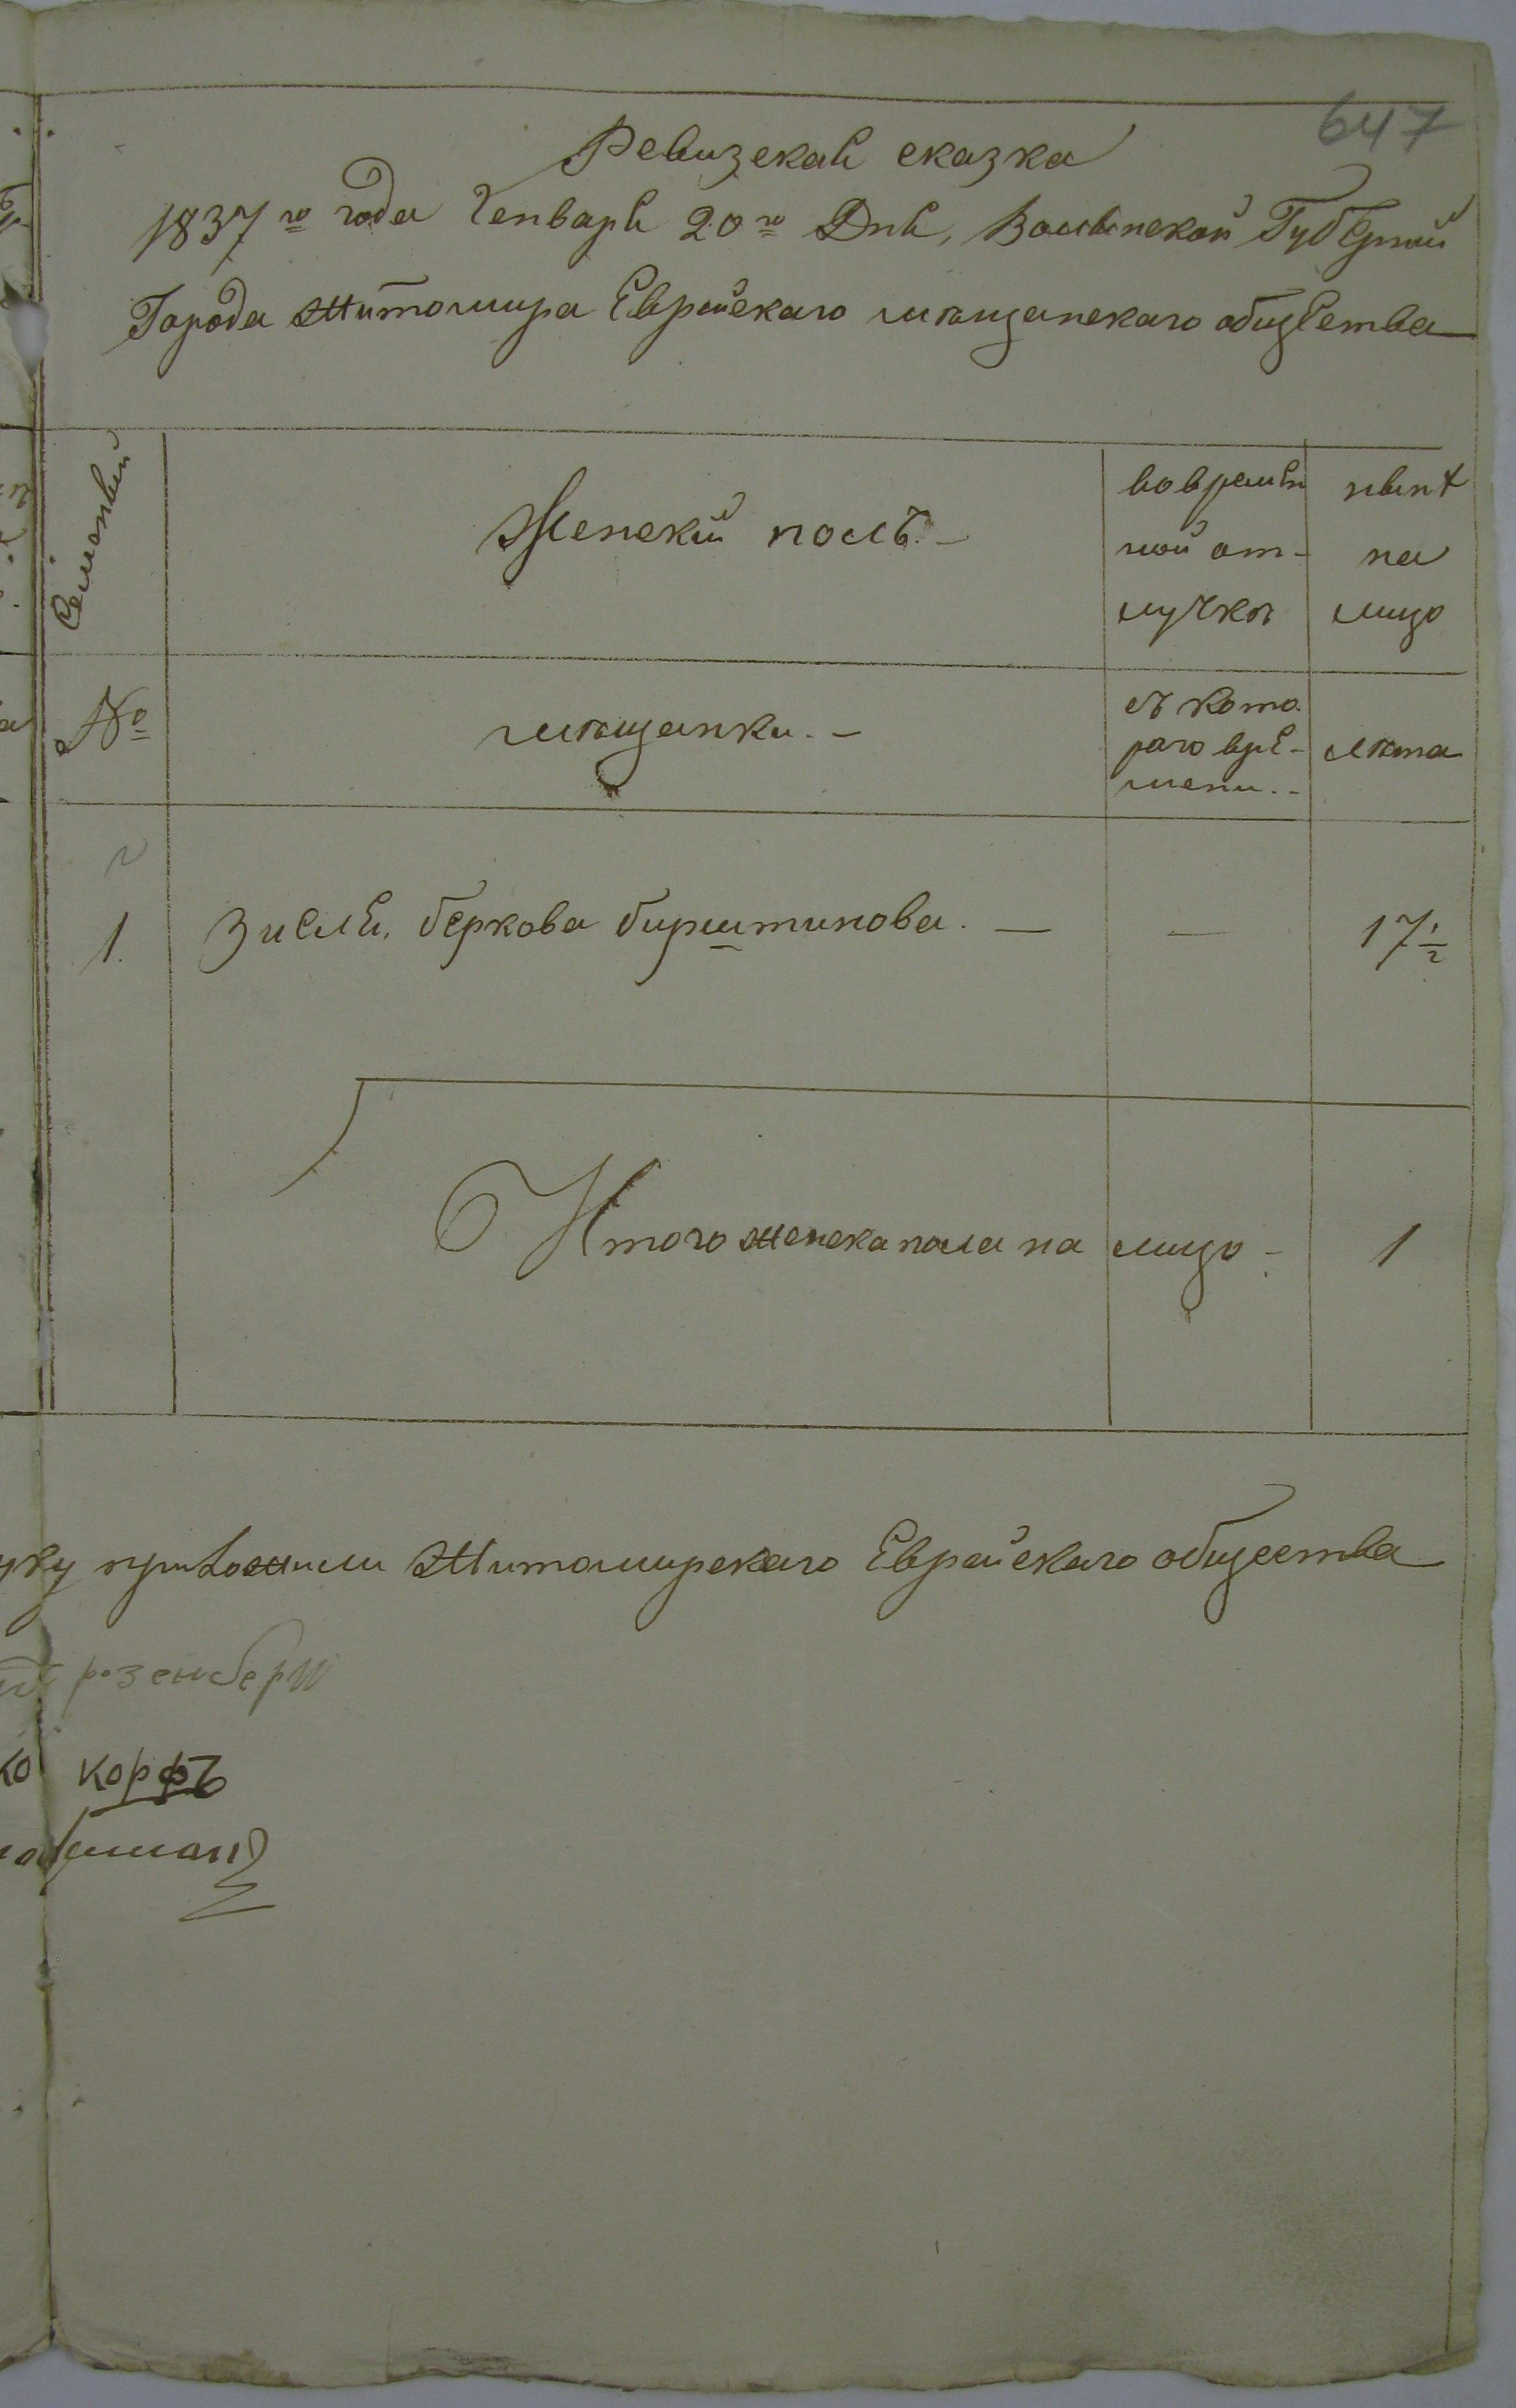 647
Ревизская сказка
1837го года Генваря 20го Дня, Волынской Губерний
Города Житомира Еврейскаго мѣщанскаго общества
Семянный
Женский полъ. –
во времѣн
ной от-
лучкѣ
нынѣ
на
лицо
№
мѣщанки. –
съ кото
раго вре-
мени. –
лѣта
1. Зисля, беркова бирштинова. — — 17½
Итого женска пола на лицо – 1
уку приложили Житомирскаго Еврейскаго общества
розенберг
ко корфъ